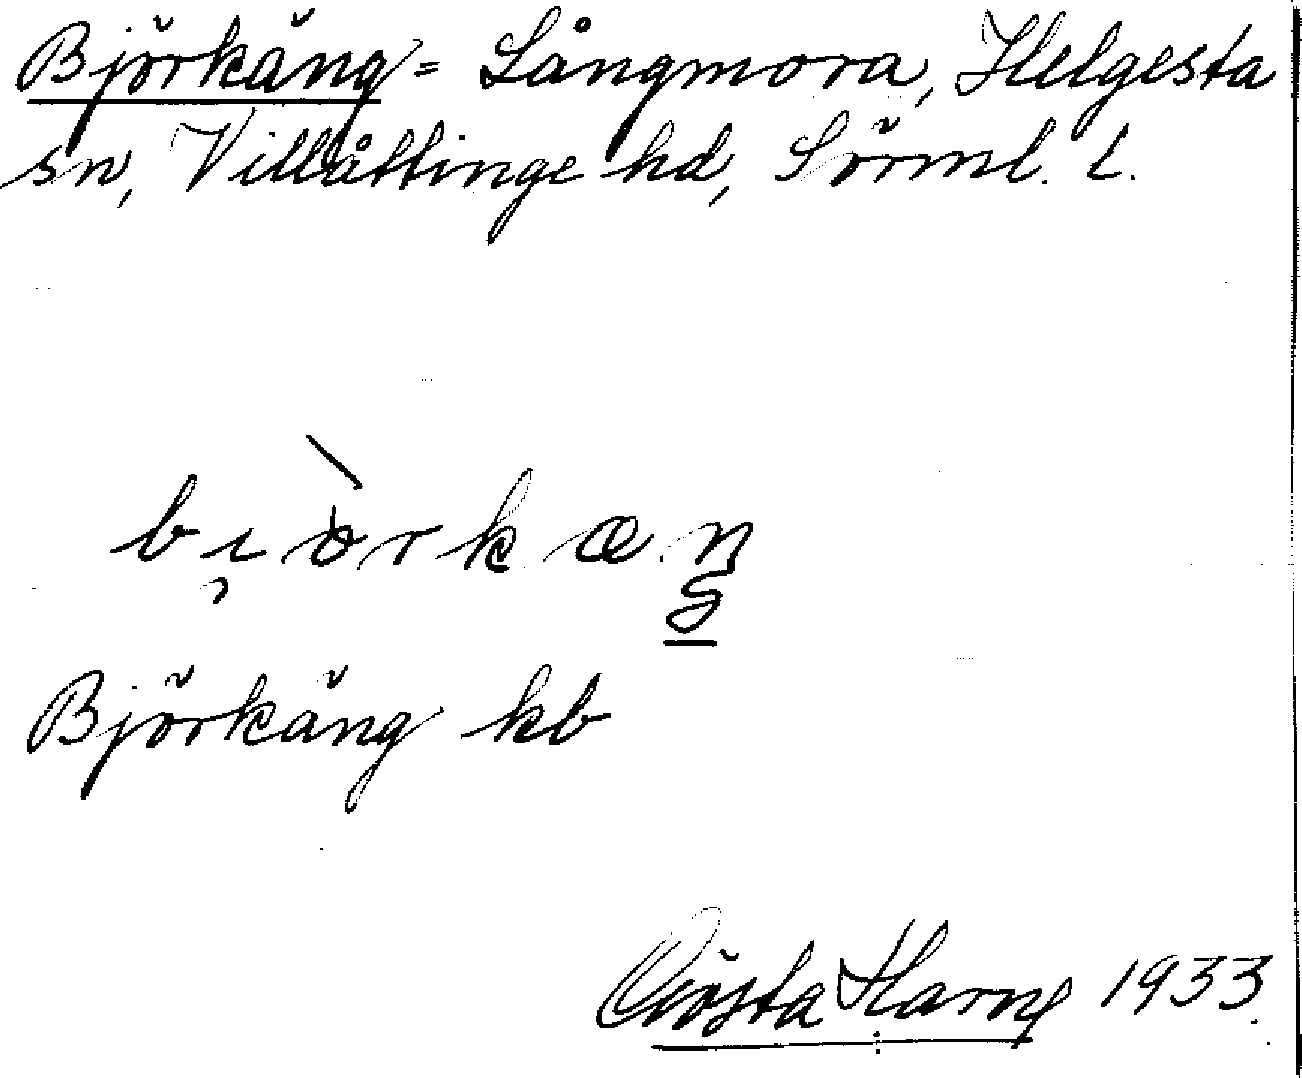 Björkäng = Långmora, Helgesta
sn, Villåttinge hd, Sörml. l.
Björkäng kb
Gösta Harne 1933.